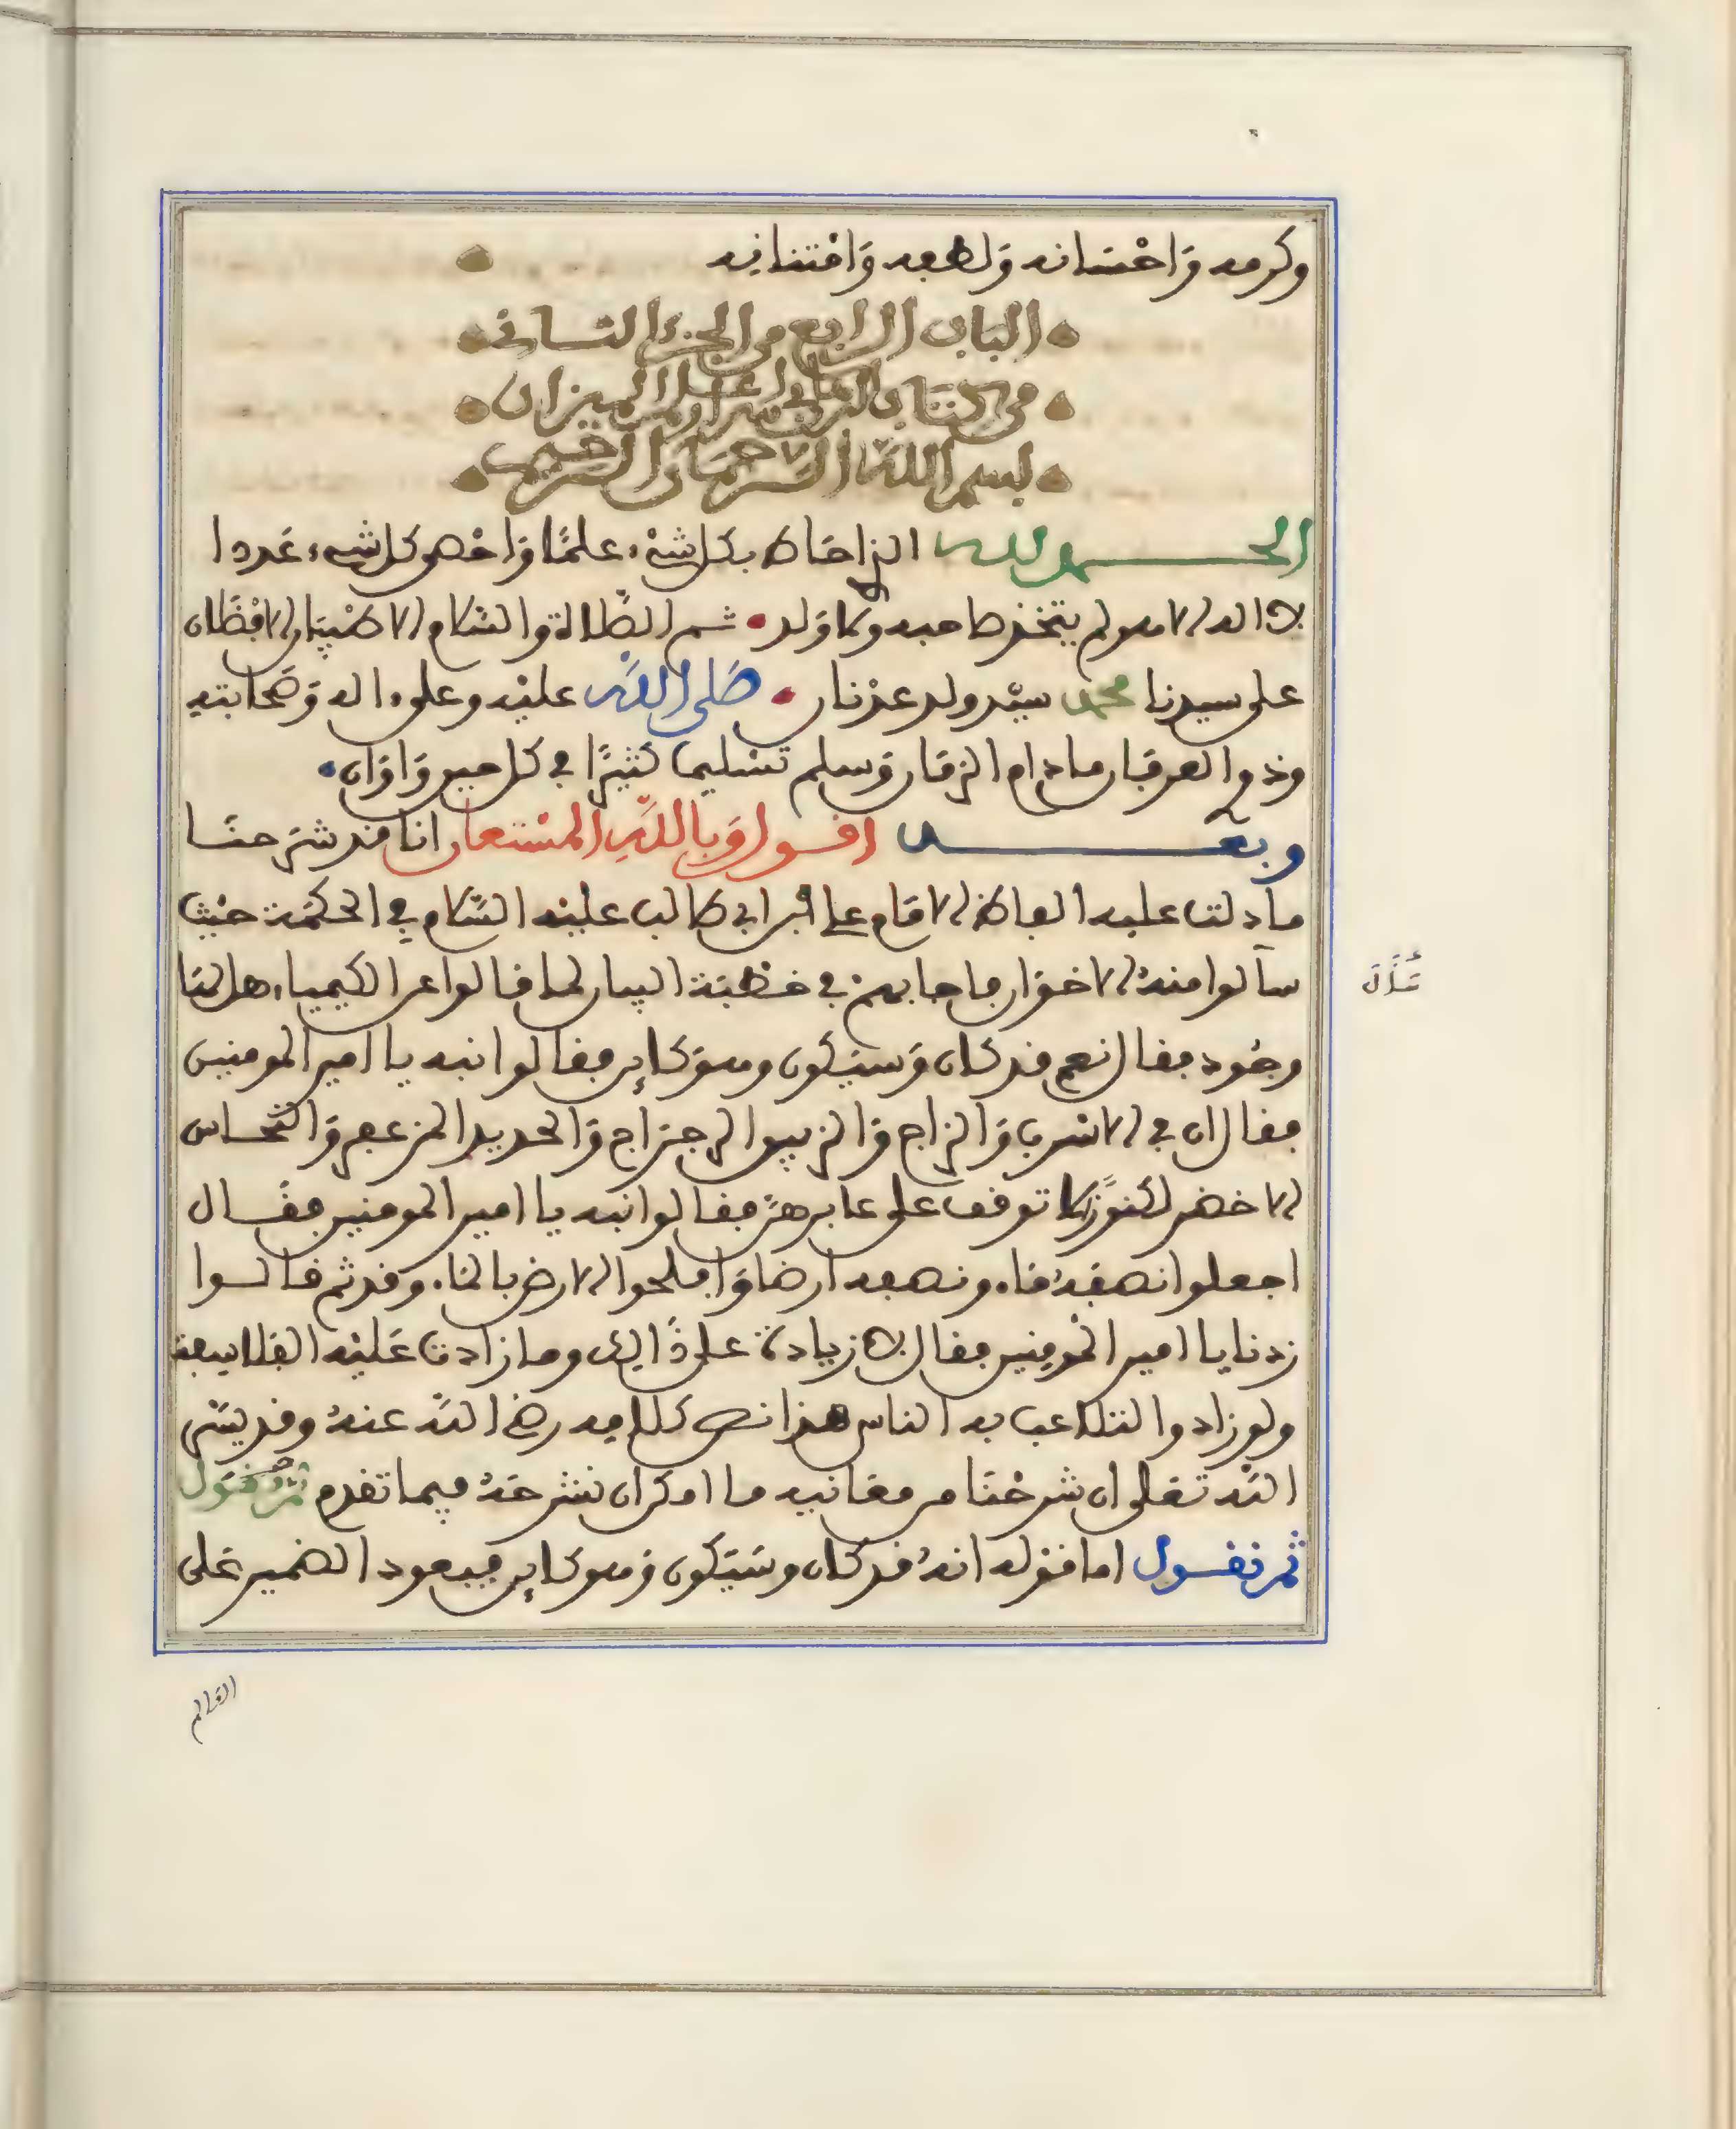 وكرمه وَاحْسَانه وَلطفه وَامْتنانِه
الباب الرابع من الجزء الثاني
من كتاب البرهان في اسرار علم الميزان
بسم الله الرحمان الرحيم
الحمد لله الذي احَاط بكل شيْء علمًا وَاحْصى كل شيء عَددا
لا اله الا هو لم يتخذ صاحبه ولا وَلد ثم الصَّلاة والسَّلام الاطْيبَان الافْضَلان
على سيدنا محمد سيّد ولد عدْنان صَلى اللهُ عليْه وعلى ءاله وَصَحَابته
وذوا العرفَان ما دام الزمَان وَسلم تسْليما كثيرًا في كل حين وَاوَان
وبعد اقول وَباللهِ المسْتعان انا قد شرَحنَا
ما دلت عليه الفاظ الامَام علي ابن ابي طالب عليْه السَّلام في الحكمَة حيْث
سآلوا منهُ الاخوَان ما جابهمْ في خطبَة البيان لما قالوا عن الكيمياء هل لهَا
وجُود فقال نعم قد كان وَسيَكون وهوَ كاين فقالوا انبه يا امير المومنين
فقال ان في الاسْرب وَالزاج وَالزيبق الرجرَاج وَالحديد المزعفر وَالنحَاس
الاخضر لكنوزًا لا توقف على عابرهنَّ فقالوا انبه يا امير المومنين فقَال
اجعلوا نصْفهُ مَاء ونصفه ارضا وَافلحوا الارض بالمَاء وقد ثم قالوا
زدنا يا امير المُومِنين فقال لا زيادة على ذَالك وما زادت عَليْه الفلاسِفة
ولو زادوا لتلاعب به الناس هذا نص كلامه رضي اللَّه عنهُ وقد يسَّر
اللَّه تعَلى ان شرحْنَا من معَانيه ما امكن ان نشرحَهُ فيما تقدم ثم نقول
ثم نقول اما قوله انهُ قد كان وسَيَكون وَهو كاين فيعود الضمير عَلى
العَالم